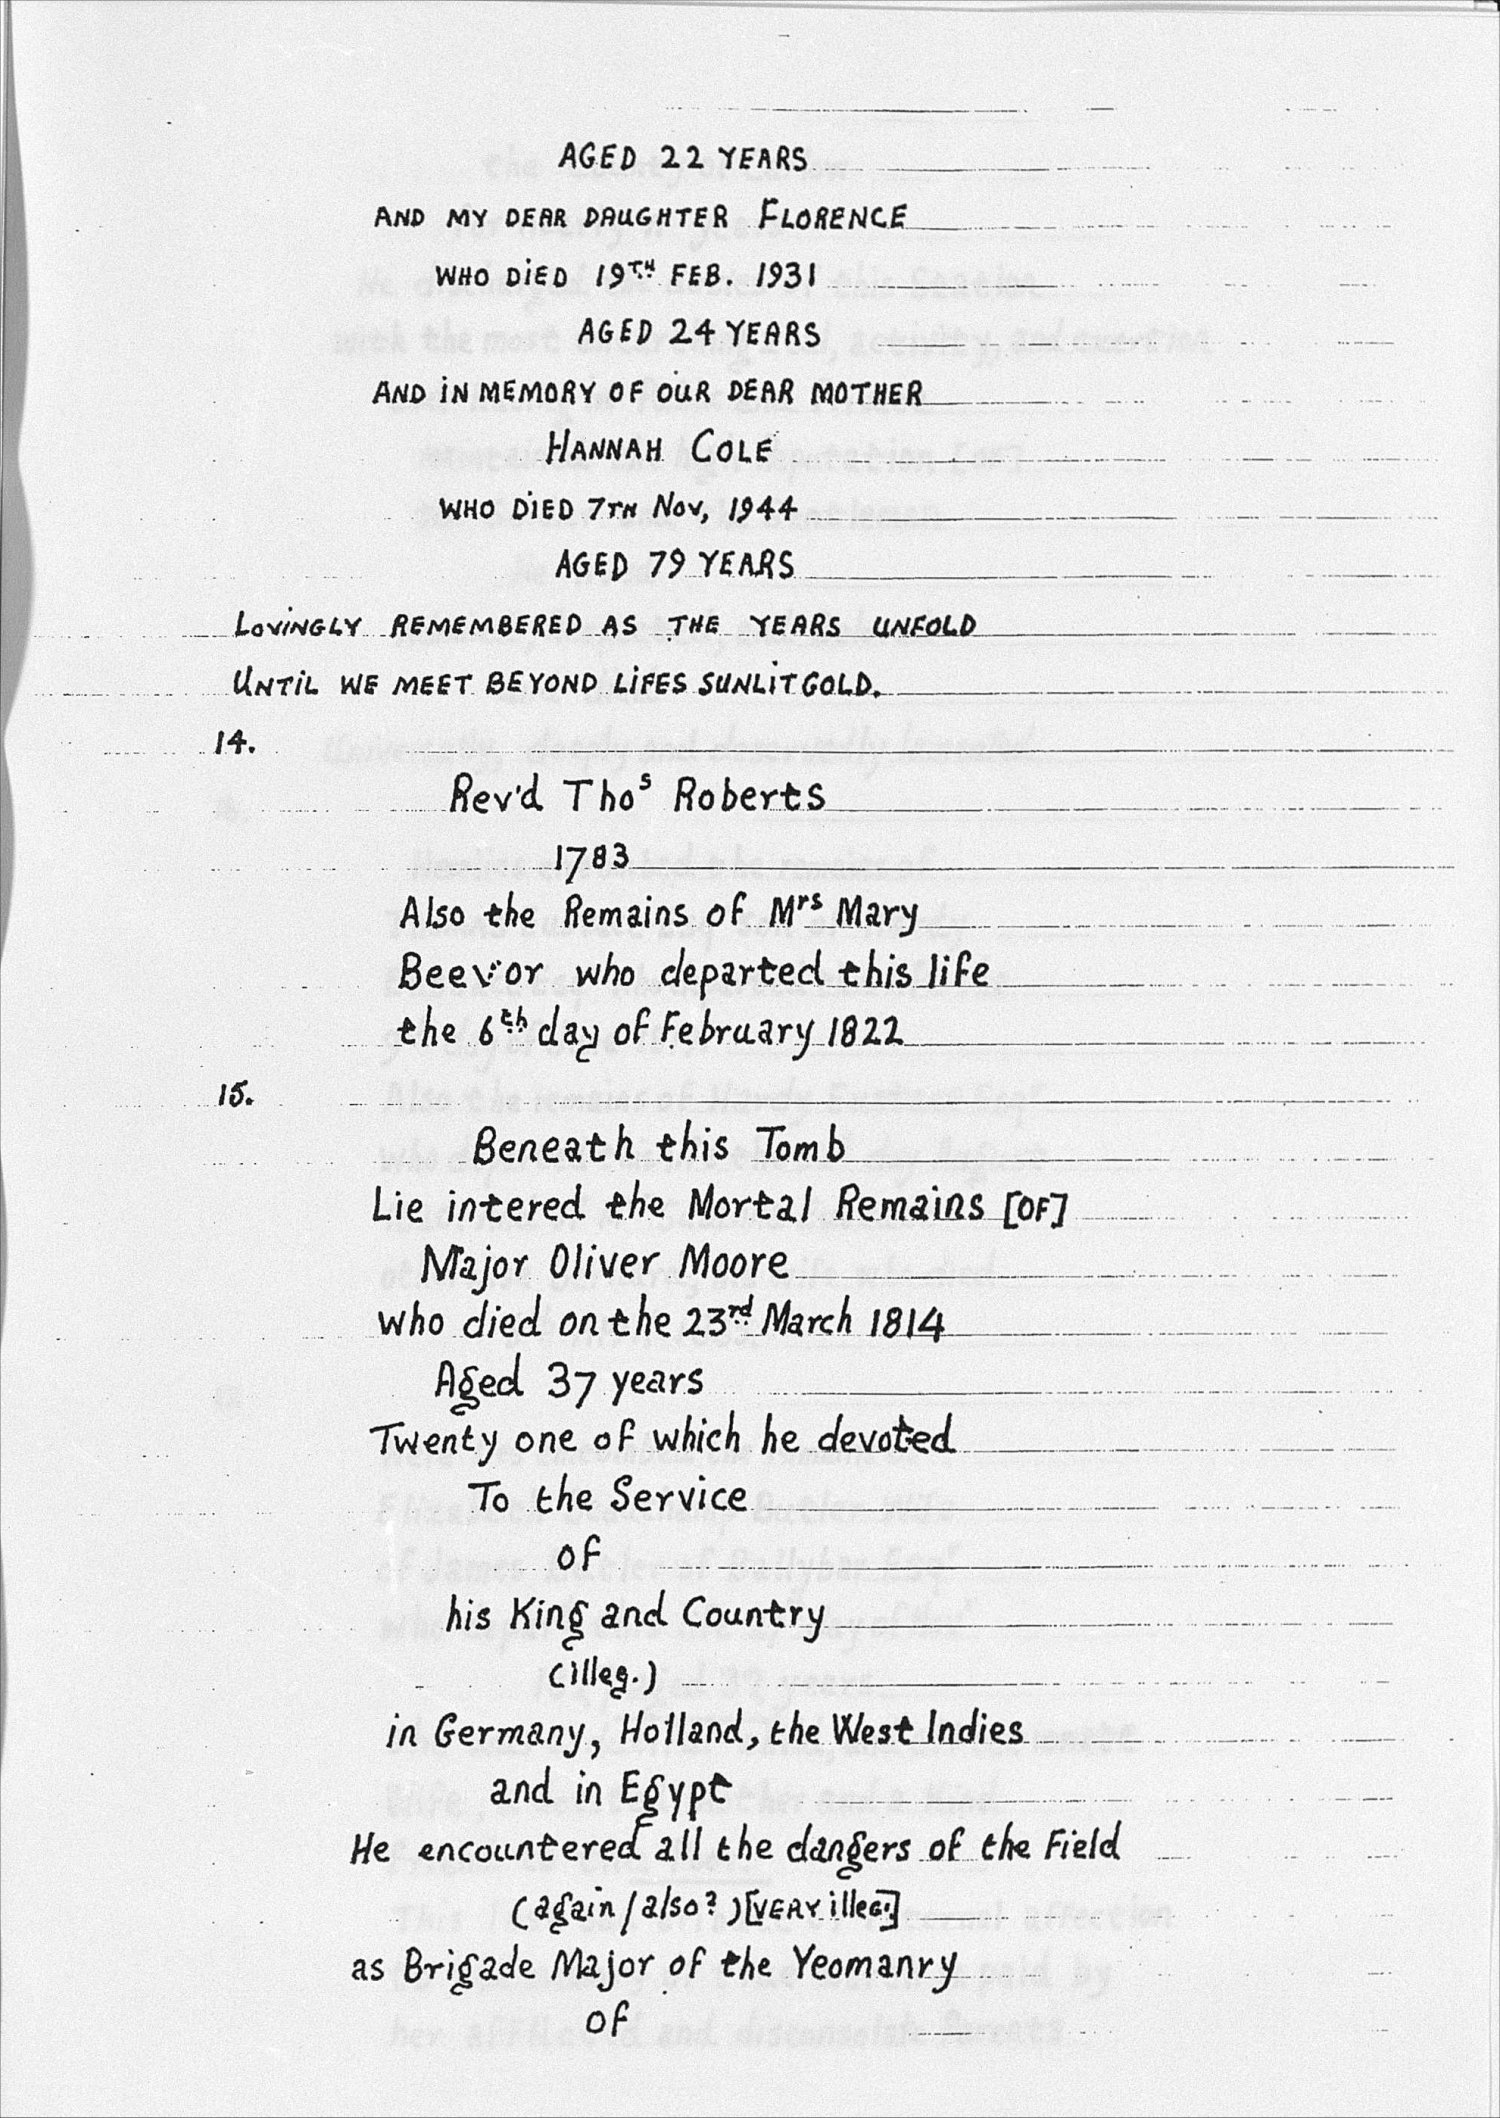 AGED 22 YEARS
AND MY DEAR DAUGHTER FLORENCE
WHO DIED 19TH FEB. 1931
AGED 24 YEARS
AND IN MEMORY OF OUR DEAR MOTHER
HANNAH COLE
WHO DIED 7TH Nov, 1944
AGED 79 YEARS
LOVINGLY REMEMBERED AS THE YEARS UNFOLD
UNTIL WE MEET BEYOND LIFES SUNLIT GOLD.
14.
Rev'd Thos Roberts
1783
Also the Remains of Mrs Mary
Beevor who departed this life
the 6th day of February 1822
15.
Beneath this Tomb
Lie intered the Mortal Remains [OF]
Major Oliver Moore
who died on the 23rd March 1814
Aged 37 years
Twenty one of which he devoted
To the Service
of
his King and Country
(illeg.)
in Germany, Holland, the West Indies
and in Egypt
He encountered all the dangers of the Field
(again/also?) [VERY illeg.]
as Brigade Major of the Yeomanry
of